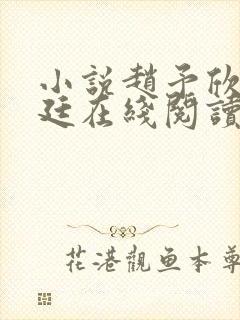 小説趙予欣
廷在綫閱讀
花港觀鱼本尊